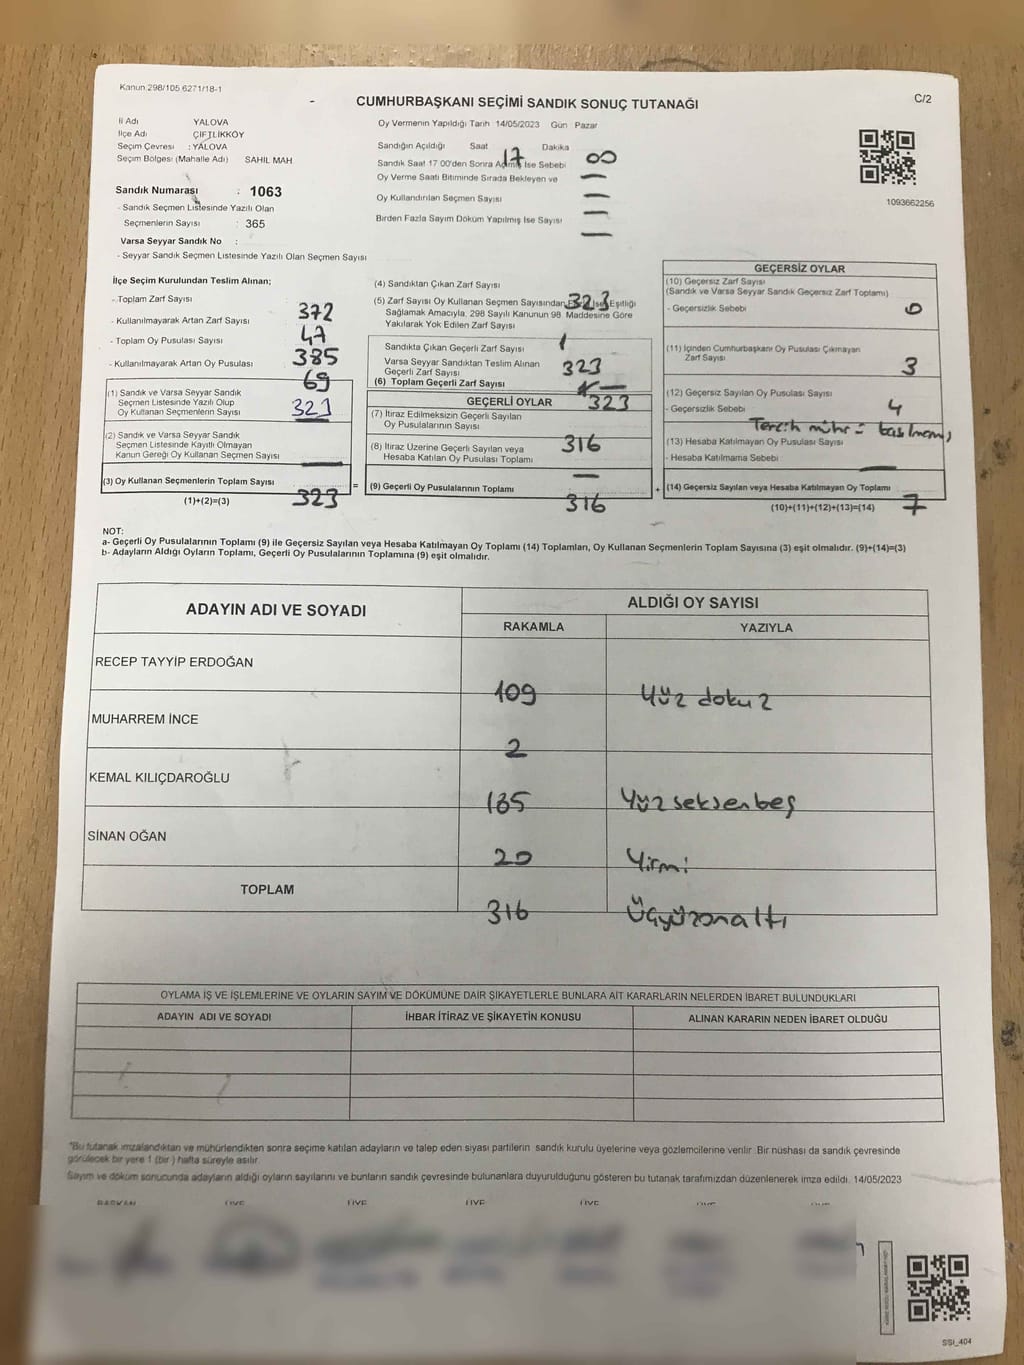 Kanun 298/105.6271/18-1
CUMHURBAŞKANI SEÇİMİ SANDIK SONUÇ TUTANAĞI
C/2
İl Adı YALOVA
İlçe Adı ÇİFTLİKKÖY
Seçim Çevresi : YALOVA
Seçim Bölgesi (Mahalle Adı) SAHIL MAH
Sandık Numarası : 1063
- Sandık Seçmen Listesinde Yazılı Olan
Seçmenlerin Sayısı : 365
Varsa Seyyar Sandık No :
- Seyyar Sandık Seçmen Listesinde Yazılı Olan Seçmen Sayısı
Oy Vermenin Yapıldığı Tarih 14/05/2023 Gün Pazar
Sandığın Açıldığı Saat 17 Dakika 00
Sandık Saat 17 00'den Sonra Açılmış İse Sebebi —
Oy Verme Saati Bitiminde Sırada Bekleyen ve
Oy Kullandırılan Seçmen Sayısı —
Birden Fazla Sayım Döküm Yapılmış İse Sayısı —
—
1093662256
İlçe Seçim Kurulundan Teslim Alınan;
- Toplam Zarf Sayısı 372
- Kullanılmayarak Artan Zarf Sayısı 47
- Toplam Oy Pusulası Sayısı 385
- Kullanılmayarak Artan Oy Pusulası 69
(1) Sandık ve Varsa Seyyar Sandık
Seçmen Listesinde Yazılı Olup
Oy Kullanan Seçmenlerin Sayısı 323
(2) Sandık ve Varsa Seyyar Sandık
Seçmen Listesinde Kayıtlı Olmayan
Kanun Gereği Oy Kullanan Seçmen Sayısı —
(3) Oy Kullanan Seçmenlerin Toplam Sayısı
(1)+(2)=(3) 323
=
(4) Sandıktan Çıkan Zarf Sayısı 323
(5) Zarf Sayısı Oy Kullanan Seçmen Sayısından İse Eşitliği
Sağlamak Amacıyla, 298 Sayılı Kanunun 98 Maddesine Göre
Yakılarak Yok Edilen Zarf Sayısı
Sandıkta Çıkan Geçerli Zarf Sayısı 323
Varsa Seyyar Sandıktan Teslim Alınan
Geçerli Zarf Sayısı —
(6) Toplam Geçerli Zarf Sayısı 323
GEÇERLİ OYLAR
(7) İtiraz Edilmeksizin Geçerli Sayılan
Oy Pusulalarının Sayısı 316
(8) İtiraz Üzerine Geçerli Sayılan veya
Hesaba Katılan Oy Pusulası Toplamı —
(9) Geçerli Oy Pusulalarının Toplamı 316
+
GEÇERSİZ OYLAR
(10) Geçersiz Zarf Sayısı
(Sandık ve Varsa Seyyar Sandık Geçersiz Zarf Toplamı)
- Geçersizlik Sebebi 0
(11) İçinden Cumhurbaşkanı Oy Pusulası Çıkmayan
Zarf Sayısı 3
(12) Geçersiz Sayılan Oy Pusulası Sayısı 4
- Geçersizlik Sebebi Tercih mührü basılmamış
(13) Hesaba Katılmayan Oy Pusulası Sayısı —
- Hesaba Katılmama Sebebi
(14) Geçersiz Sayılan veya Hesaba Katılmayan Oy Toplamı
(10)+(11)+(12)+(13)=(14) 7
NOT:
a- Geçerli Oy Pusulalarının Toplamı (9) ile Geçersiz Sayılan veya Hesaba Katılmayan Oy Toplamı (14) Toplamları, Oy Kullanan Seçmenlerin Toplam Sayısına (3) eşit olmalıdır. (9)+(14)=(3)
b- Adayların Aldığı Oyların Toplamı, Geçerli Oy Pusulalarının Toplamına (9) eşit olmalıdır.
ADAYIN ADI VE SOYADI ALDIĞI OY SAYISI
RAKAMLA YAZIYLA
RECEP TAYYİP ERDOĞAN 109 Yüz dokuz
MUHARREM İNCE 2
KEMAL KILIÇDAROĞLU 185 Yüzseksenbeş
SİNAN OĞAN 20 Yirmi
TOPLAM 316 Üçyüzonaltı
OYLAMA İŞ VE İŞLEMLERİNE VE OYLARIN SAYIM VE DÖKÜMÜNE DAİR ŞİKAYETLERLE BUNLARA AİT KARARLARIN NELERDEN İBARET BULUNDUKLARI
ADAYIN ADI VE SOYADI İHBAR İTİRAZ VE ŞİKAYETİN KONUSU ALINAN KARARIN NEDEN İBARET OLDUĞU
"Bu tutanak imzalandıktan ve mühürlendikten sonra seçime katılan adayların ve talep eden siyasi partilerin sandık kurulu üyelerine veya gözlemcilerine verilir. Bir nüshası da sandık çevresinde
görülecek bir yere 1 (bir) hafta süreyle asılır.
Sayım ve döküm sonucunda adayların aldığı oyların sayılarını ve bunların sandık çevresinde bulunanlara duyurulduğunu gösteren bu tutanak tarafımızdan düzenlenerek imza edildi. 14/05/2023
BAŞKAN ÜYE ÜYE ÜYE ÜYE ÜYE ÜYE
SSI_404